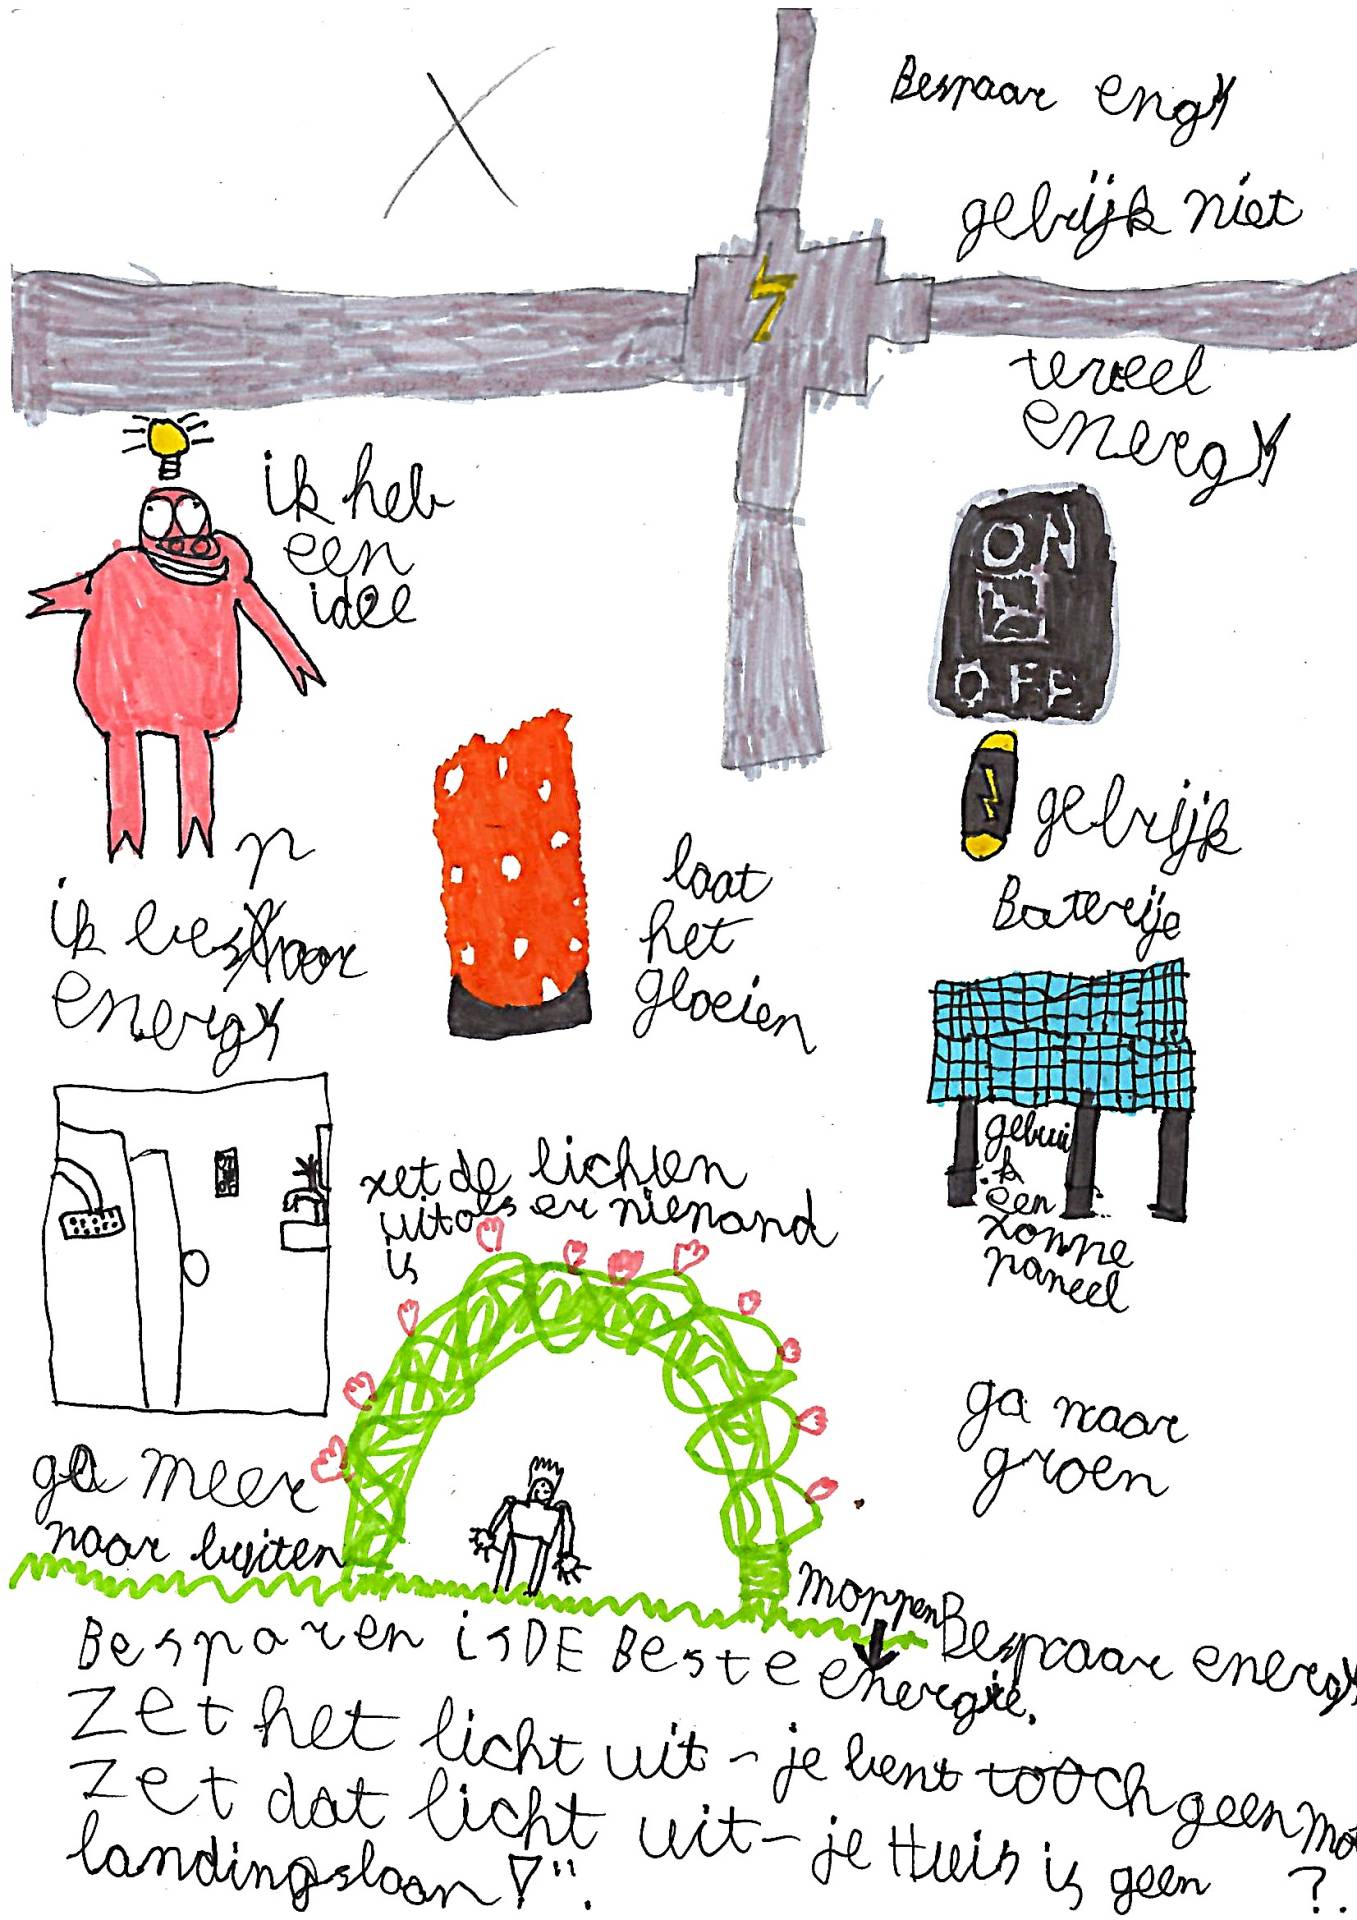 Bespaar engy
gebrijk niet
teveel
energy
ik heb
een
idee
ON
OFF
gebrijk
Baterije
p
ik bespaar
energy
laat
het
gloeien
zet de lichten
uit als er niemand
is
gebrui
k
een
zonne
paneel
ga naar
groen
ga meer
naar buiten
moppen
Besparen is DE Beste energie.
Bespaar energy
Zet het licht uit - je bent tooch geen mot
?.
Zet dat licht uit - je Huis is geen
landingsbaan !".